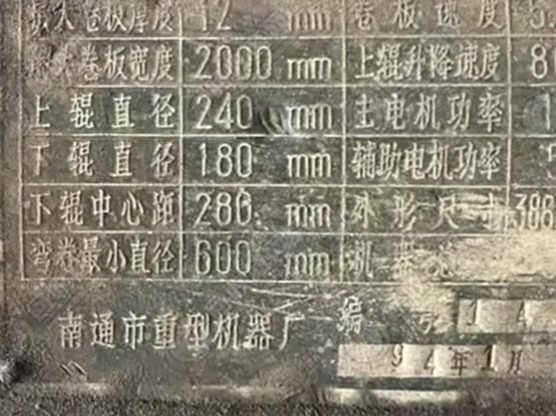 最大卷板厚度 12 mm 卷板速度
最大卷板宽度 2000 mm 上辊升降速度 8
上辊直径 240 mm 主电机功率
下辊直径 180 mm 辅助电机功率
下辊中心距 280 mm 外形尺寸 388
弯卷最小直径 600 mm 机器
南通市重型机器厂 编号 1 4
94年1月